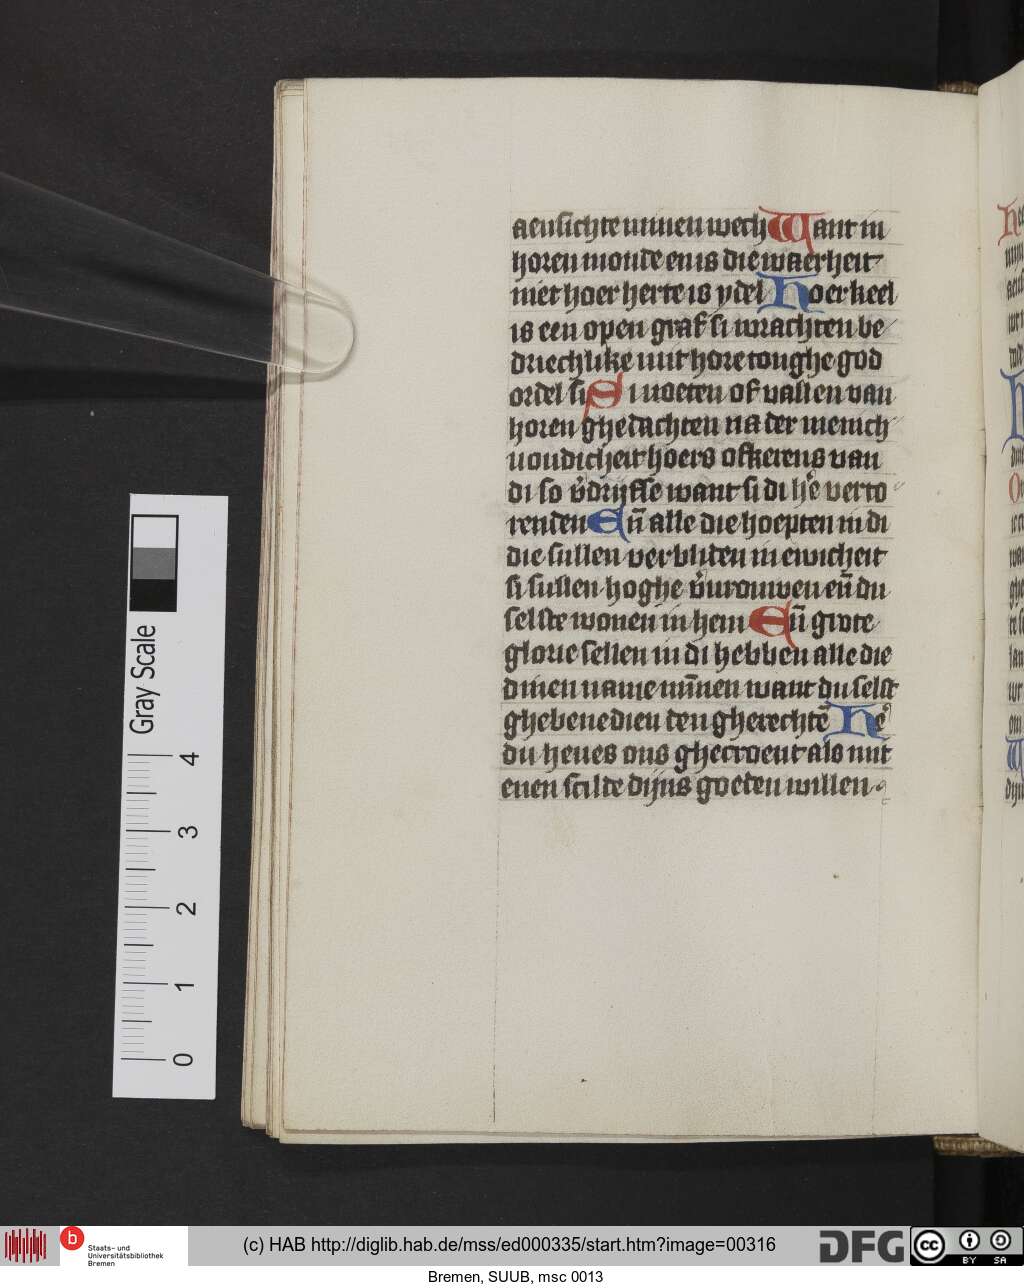 aensichte minen wech Want in
horen monde en is die waerheit
niet hoer herte is ydel Hoer keel
is een open graf si wrachten be
driechlike mit hore tonghe god
ordel si Si moeten of vallen van
horen ghedachten na der menich
uoudicheit hoers ofkerens van
di so v̾drijfse want si di he̾ verto
renden En̄ alle die hoepten in di
die sullen verbliden in ewicheit
si sullen hoghe v̾urouwen en̄ du
selste wonen in hem En̄ grote
glorie sellen in di hebben alle die
dinen name mīnen want du selst
ghebenedien den gherechtē He̾
du heues ons ghecroent als mit
enen scilde dijns goeden willen
Gray Scale
4
3
2
1
0
b
Staats- und
Universitätsbibliothek
Bremen
(c) HAB http://diglib.hab.de/mss/ed000335/start.htm?image=00316
DFG
cc
BY SA
Bremen, SUUB, msc 0013